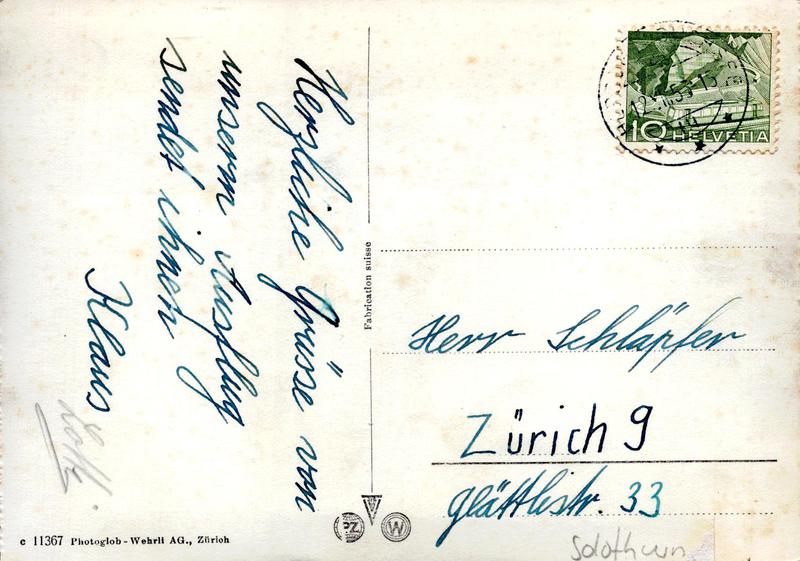 Herzliche Grüsse von
unserm Ausflug
sendet ihnen
Klaus
c 11367 Photoglob-Wehrli AG., Zürich
Fabrication suisse
PZ
W
10 HELVETIA
Herr Schläpfer
Zürich 9
Glättlistr. 33
Solothurn